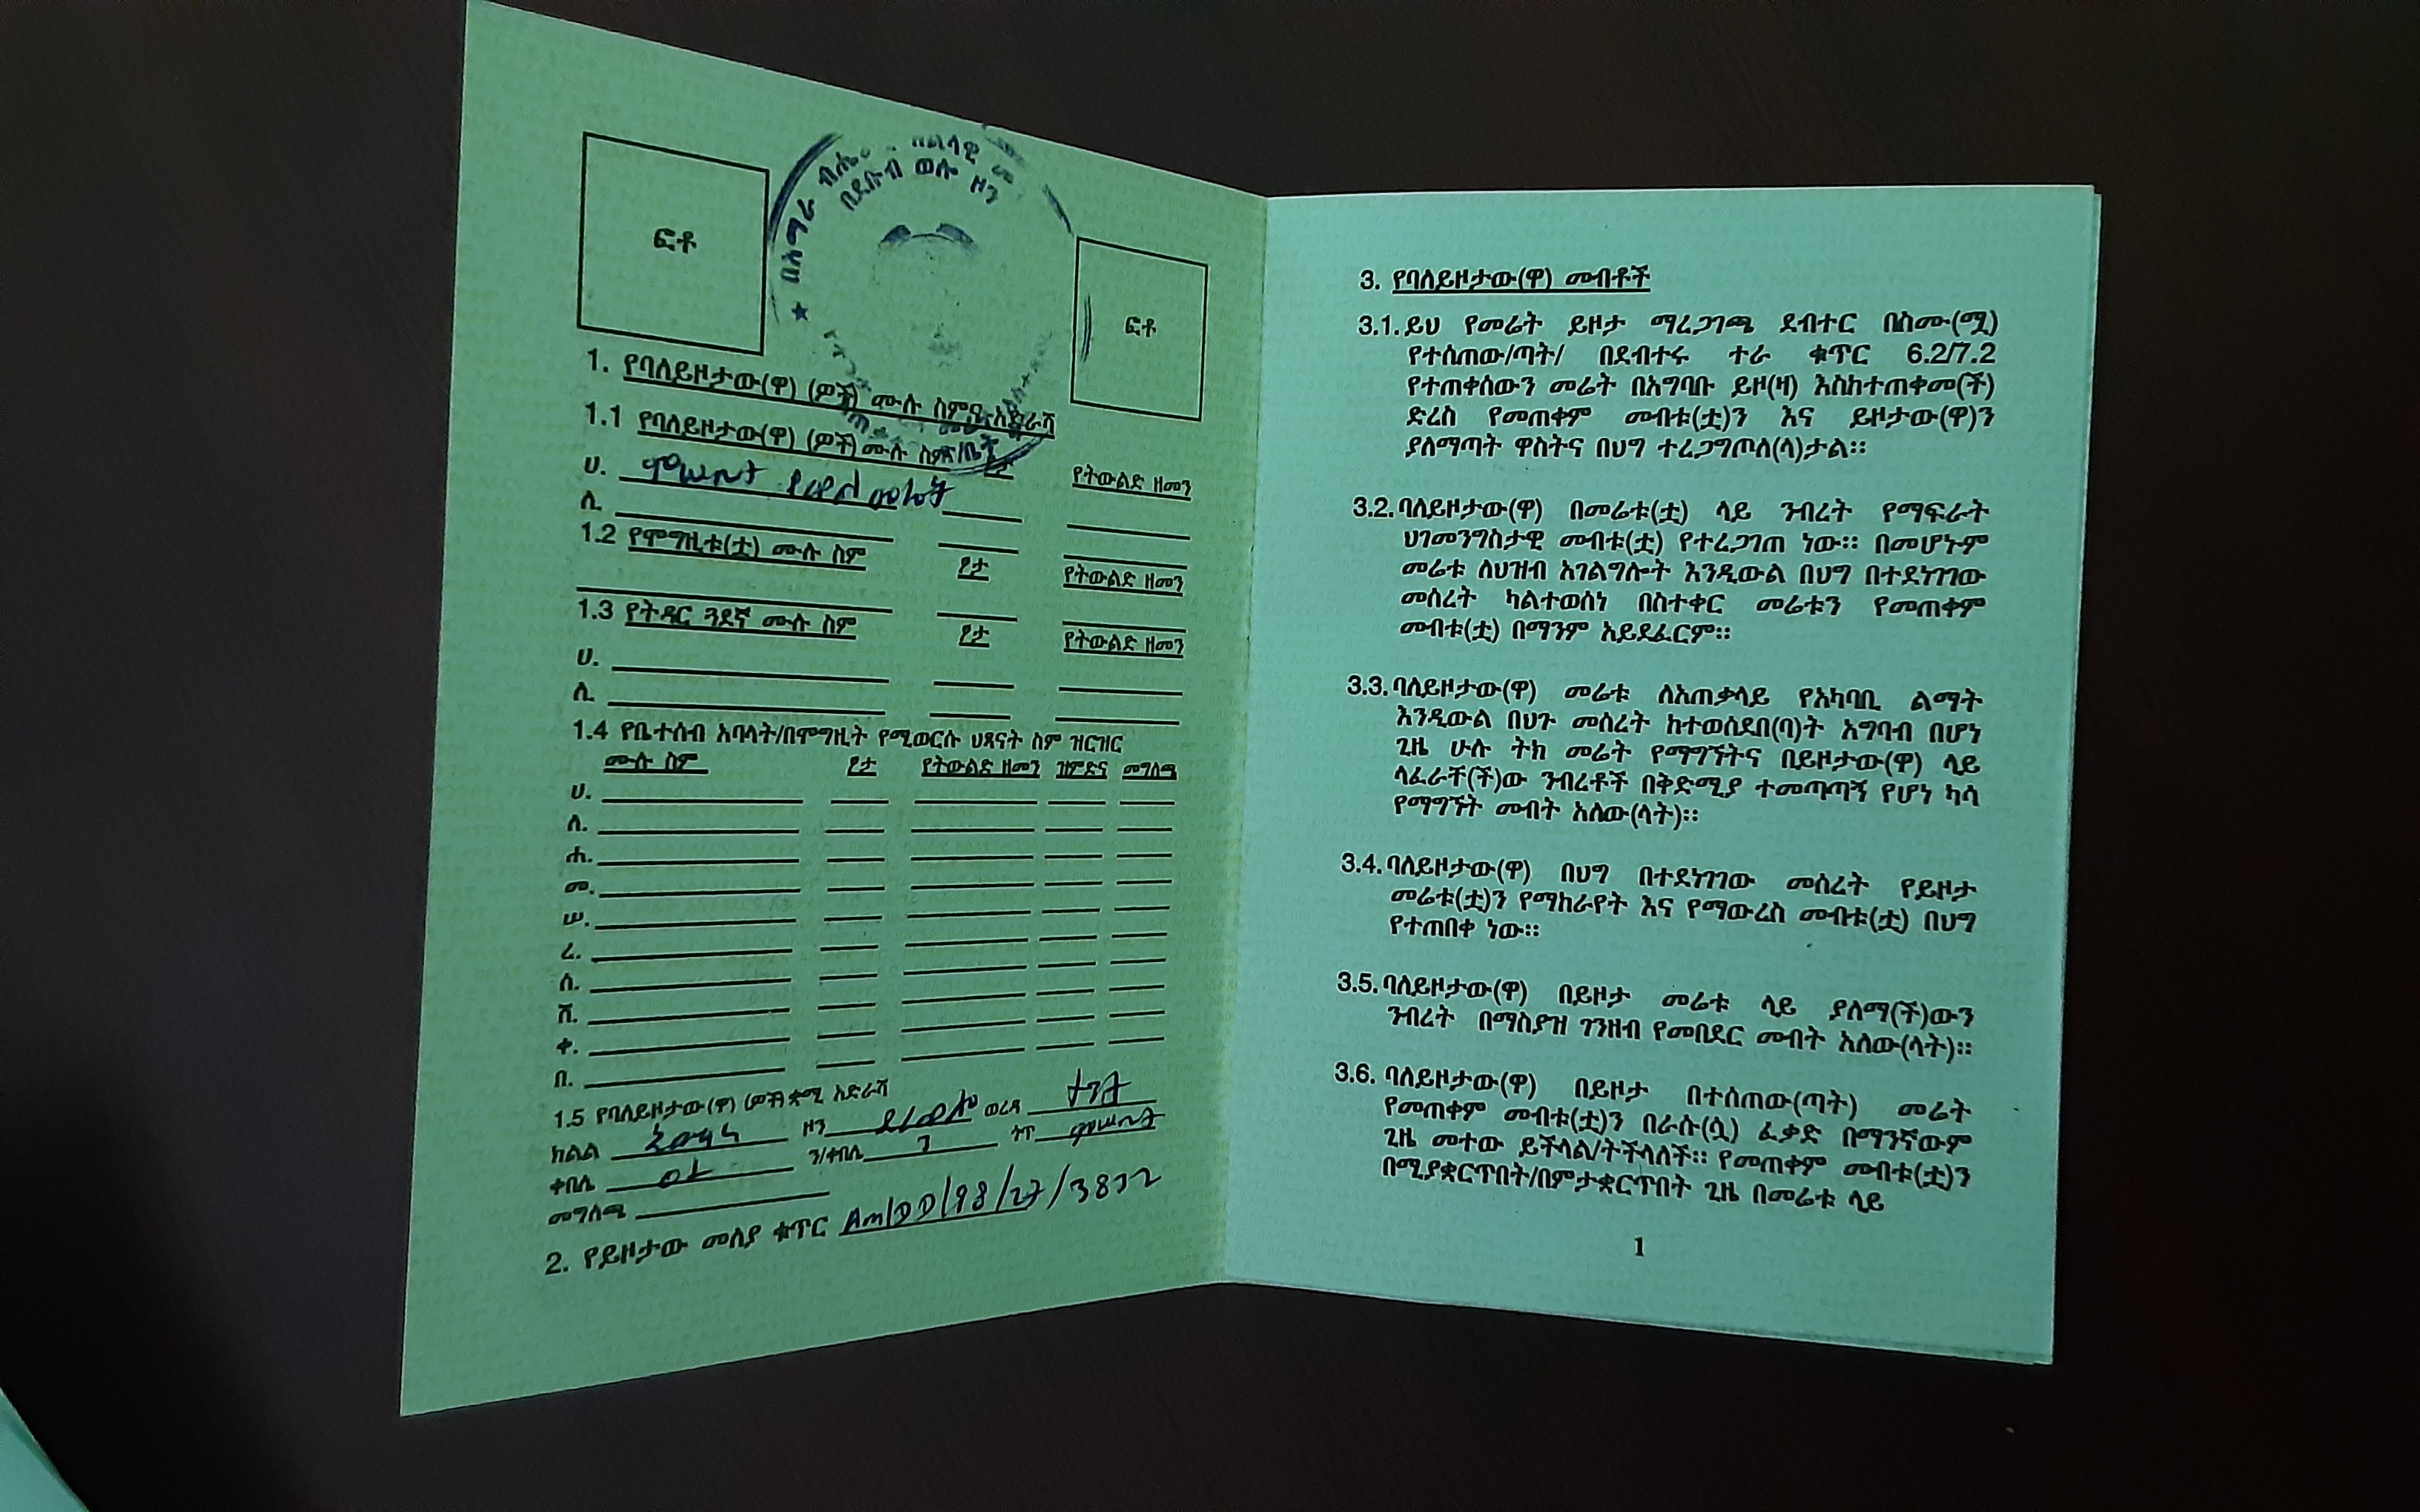 ፎቶ
በአማራ
በደቡብ ወሎ ዞን
ፎቶ
1. የባለይዞታው(ዋ) (ዎች) ሙሉ ስምና አድራሻ
1.1 የባለይዞታው(ዋ) (ዎች) ሙሉ ስም
የትውልድ ዘመን
ሀ.
ለ.
1.2 የሞግዚቱ(ቷ) ሙሉ ስም ፆታ የትውልድ ዘመን
1.3 የትዳር ጓደኛ ሙሉ ስም ፆታ የትውልድ ዘመን
ሀ.
ለ.
1.4 የቤተሰብ አባላት/በሞግዚት የሚወርሱ ህጻናት ስም ዝርዝር
ሙሉ ስም ፆታ የትውልድ ዘመን ዝምድና መግለጫ
ሀ.
ለ.
ሐ.
መ.
ሠ.
ረ.
ሰ.
ሸ.
ቀ.
በ.
1.5 የባለይዞታው(ዋ) (ዎች) ቋሚ አድራሻ
ክልል አማራ ዞን ደ/ወሎ ወረዳ
ቀበሌ ን/ቀበሌ ጎጥ
መግለጫ
2. የይዞታው መለያ ቁጥር Am/DD/98/27/3832
3. የባለይዞታው(ዋ) መብቶች
3.1. ይህ የመሬት ይዞታ ማረጋገጫ ደብተር በስሙ(ሟ)
የተሰጠው/ጣት/ በደብተሩ ተራ ቁጥር 6.2/7.2
የተጠቀሰውን መሬት በአግባቡ ይዞ(ዛ) እስከተጠቀመ(ች)
ድረስ የመጠቀም መብቱ(ቷ)ን እና ይዞታው(ዋ)ን
ያለማጣት ዋስትና በህግ ተረጋግጦለ(ላ)ታል፡፡
3.2. ባለይዞታው(ዋ) በመሬቱ(ቷ) ላይ ንብረት የማፍራት
ህገመንግስታዊ መብቱ(ቷ) የተረጋገጠ ነው፡፡ በመሆኑም
መሬቱ ለህዝብ አገልግሎት እንዲውል በህግ በተደነገገው
መሰረት ካልተወሰነ በስተቀር መሬቱን የመጠቀም
መብቱ(ቷ) በማንም አይደፈርም፡፡
3.3. ባለይዞታው(ዋ) መሬቱ ለአጠቃላይ የአካባቢ ልማት
እንዲውል በህጉ መሰረት ከተወሰደበ(ባ)ት አግባብ በሆነ
ጊዜ ሁሉ ትክ መሬት የማግኘትና በይዞታው(ዋ) ላይ
ላፈራቸ(ች)ው ንብረቶች በቅድሚያ ተመጣጣኝ የሆነ ካሳ
የማግኘት መብት አለው(ላት)፡፡
3.4. ባለይዞታው(ዋ) በህግ በተደነገገው መሰረት የይዞታ
መሬቱ(ቷ)ን የማከራየት እና የማውረስ መብቱ(ቷ) በህግ
የተጠበቀ ነው፡፡
3.5. ባለይዞታው(ዋ) በይዞታ መሬቱ ላይ ያለማ(ች)ውን
ንብረት በማስያዝ ገንዘብ የመበደር መብት አለው(ላት)፡፡
3.6. ባለይዞታው(ዋ) በይዞታ በተሰጠው(ጣት) መሬት
የመጠቀም መብቱ(ቷ)ን በራሱ(ሷ) ፈቃድ በማንኛውም
ጊዜ መተው ይችላል/ትችላለች፡፡ የመጠቀም መብቱ(ቷ)ን
በሚያቋርጥበት/በምታቋርጥበት ጊዜ በመሬቱ ላይ
1